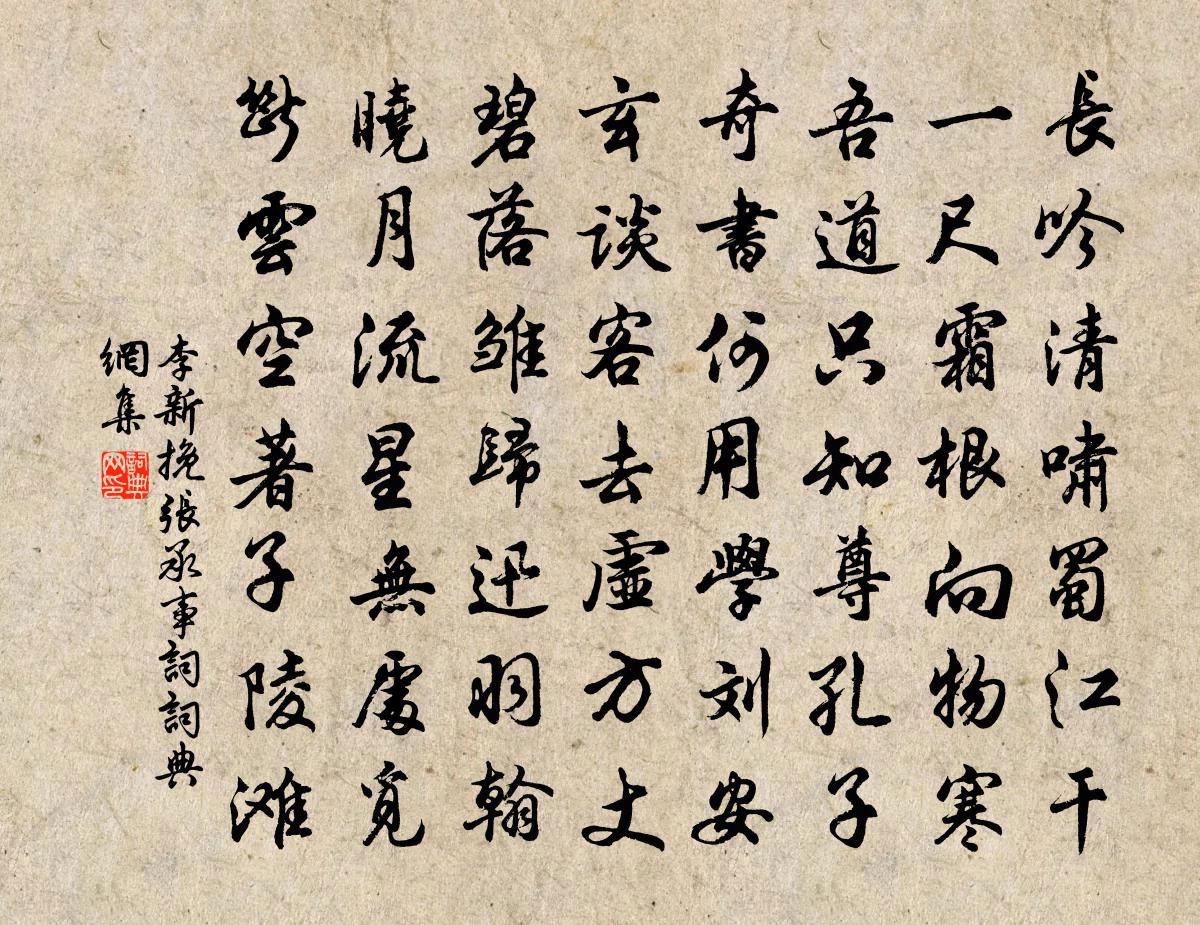 長吟清嘯蜀江干
一尺霜根向物寒
吾道只知尊孔子
奇書何用學刘安
玄談客去虛方丈
碧落雏歸迅羽翰
曉月流星無處覓
斷雲空著子陵滩
李新挽張承事詞詞典
網集
詞典网印